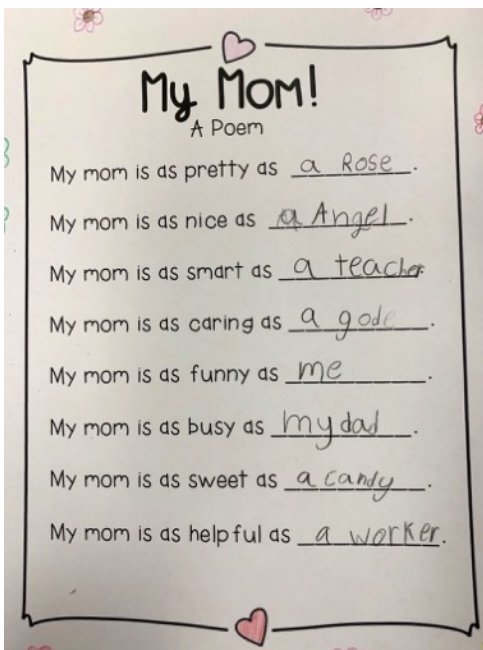 My Mom!
A Poem
My mom is as pretty as a Rose.
My mom is as nice as a Angel.
My mom is as smart as a teacher.
My mom is as caring as a gode.
My mom is as funny as me.
My mom is as busy as my dad.
My mom is as sweet as a candy.
My mom is as helpful as a worker.